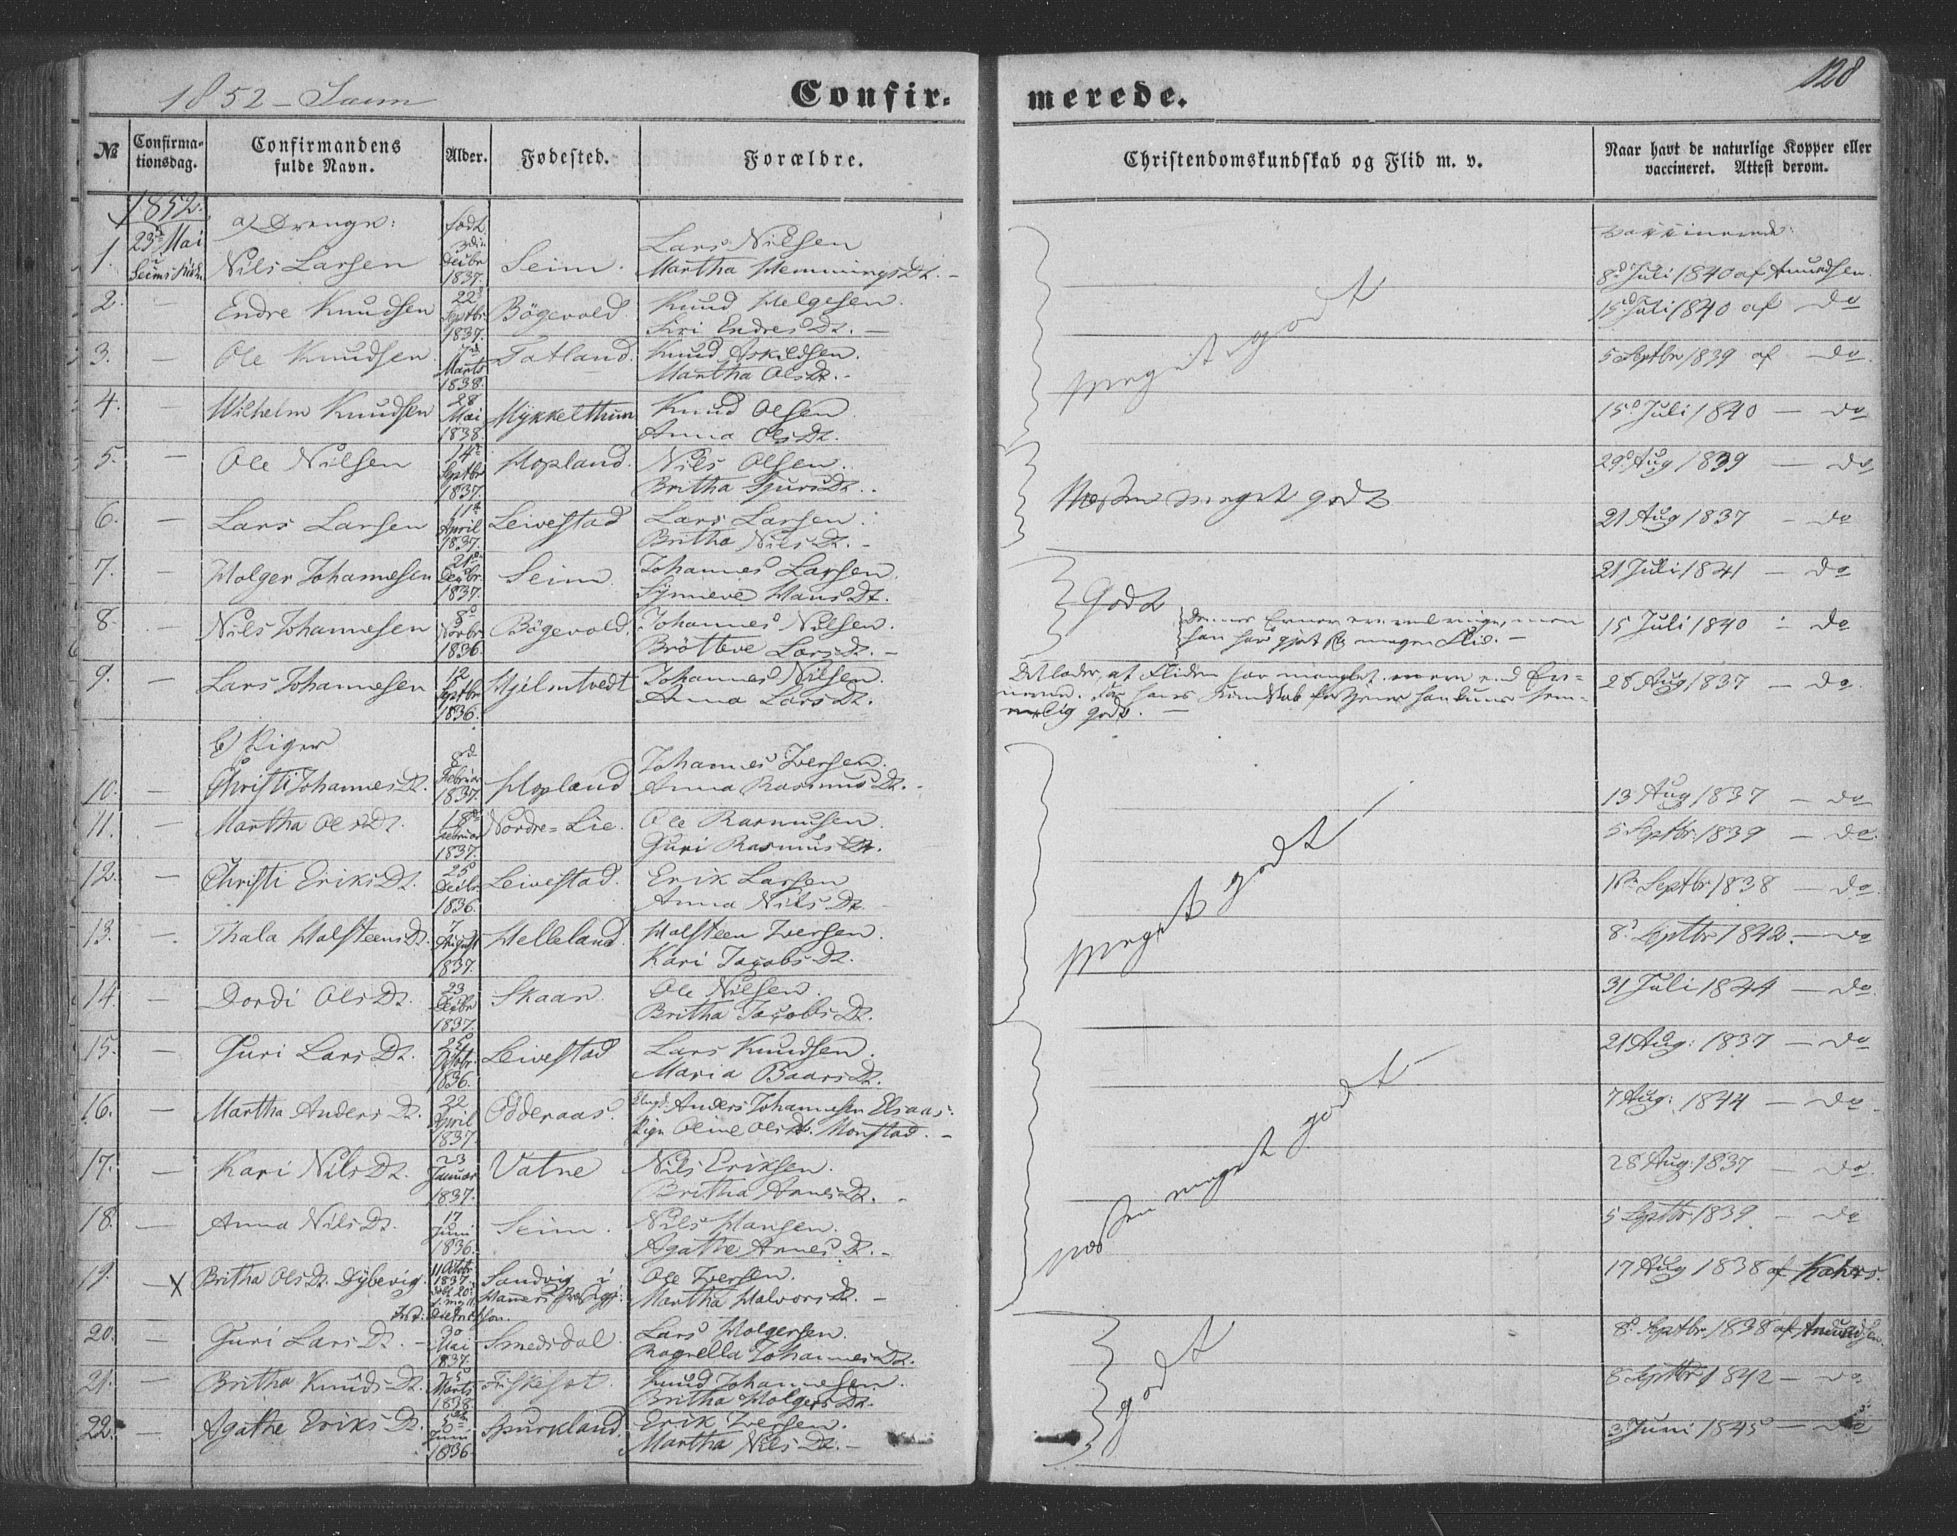 1852 - Saim
Confirmerede.
128
№
Confirmationsdag.
Confirmandens fulde Navn.
Alder.
Fødested.
Forældre.
Christendomskundskab og Flid m. v.
Naar havt de naturlige Kopper eller vaccineret. Attest derom.
1852.
a) Drenge:
født
1. 23de Mai i Seims Kirke Nils Larsen 3die Decbr 1837. Seim. Lars Nilsen Martha HemmingsDt. - 8de Juli 1840 af Amundsen.
2. - Endre Knudsen 22 Septbr. 1837. Bögevold. Knud Helgesen. Siri EndresDt. - 15d Juli 1840 af do
3. - Ole Knudsen. 7d Marts 1838. Fatland. Knud Askildsen. Martha OlsDt. - meget godt 5 Septbr 1839 af do.
4. - Wilhelm Knudsen 28 Mai 1838. Mykkelthun Knud Olsen. Anna OlsDt. 15d Juli 1840 - do
5. - Ole Nilsen 14de Septbr 1837. Hopland. Nils Olsen. Britha SjursDt. 29d Aug 1839 - do
6. - Lars Larsen 11te April 1837. Leivestad Lars Larsen. Britha NilsDt. - Næsten meget godt 21 Aug 1837 - do
7. - Holger Johannesen 21d Decbr. 1837. Seim. Johannes Larsen. Synneve HansDt. 21 Juli 1841 - do
8. - Nils Johannesen 8d Novbr 1836. Bögevold. Johannes Nilsen. Brötteve LarsDt. - Godt
dennes Evner ere vel ringe, men
han har gjort sig megen Flid. -
15 Juli 1840 - do
9. - Lars Johannesen 12 Septbr 1836. Hjelmtvedt Johannes Nilsen. Anna LarsDt.
Det lader, at Fliden har manglet mere end Evnerne. For hans Kundskab fortjener han kuns temmelig godt. -
28 Aug 1837 - do.
b) Piger
10. - Christi JohannesDt. 8d Februar 1837. Hopland Johannes Iversen. Anna RasmusDt. - 13 Aug 1837 - do
11. - Martha OlsDt. 18d Februar 1837. Nordre=Lie. Ole Rasmusen. Guri RasmusDt. 5 Septbr. 1839 - do.
12. - Christi EriksDt. 25d Decbr. 1836. Leivestad. Erik Larsen Anna NilsDt. meget godt - Septbr 1838 - do.
13. - Thala HalsteensDt. 7 August 1837. Helleland. Halsteen Iversen. Kari JacobsDt. 8d Septbr 1842. - do
14. - Dordi OlsDt. 23 Decbr 1837. Skaan. Ole Nilsen. Britha JacobsDt. 31 Juli 1844 - do.
15. - Guri LarsDt. Octbr. 1836. Leivestad Lars Knudsen. Maria BaarsDt. 21 Aug: 1837 - do
16. - Martha AndersDt. 22 April 1837. Odderaas. Ungk. Anders Johannesen Elsaas. Pige Oline OlsDt. Monstad. - 7 Aug: 1844 - do
17. - Kari NilsDt. 23 Januar 1837. Vatne Nils Eriksen. Britha AnnesDt. - næsten meget godt - 28 Aug. 1837 - do.
18. - Anna NilsDt. 17 Juni 1836. Seim. Nils Hansen. Agathe AnnesDt. - 5 Septbr. 1839. - do
19. - X Britha OlsDt. Dybevig. 11 Octbr 1837. Sandvig i Hammers Præstegj: Ole Iversen. Martha HalvorsDt. - 17 Aug 1838 af Kahrs.
20. - Guri LarsDt. - 30 Mai 1837. Smedsdal. Lars Holgersen. Ragnella JohannesDt. 8d Septbr. 1838 af Amundsen.
21. - Britha KnudsDt. 5 Marts 1838. Fiskeset. Knud Johannesen. Britha HolgersDt. godt 8 Septbr 1842 - do
22. - Agathe EriksDt. Juni 1836 Spurkland. Erik Iversen. Martha NilsDt. - 3 Juni 1845 - do